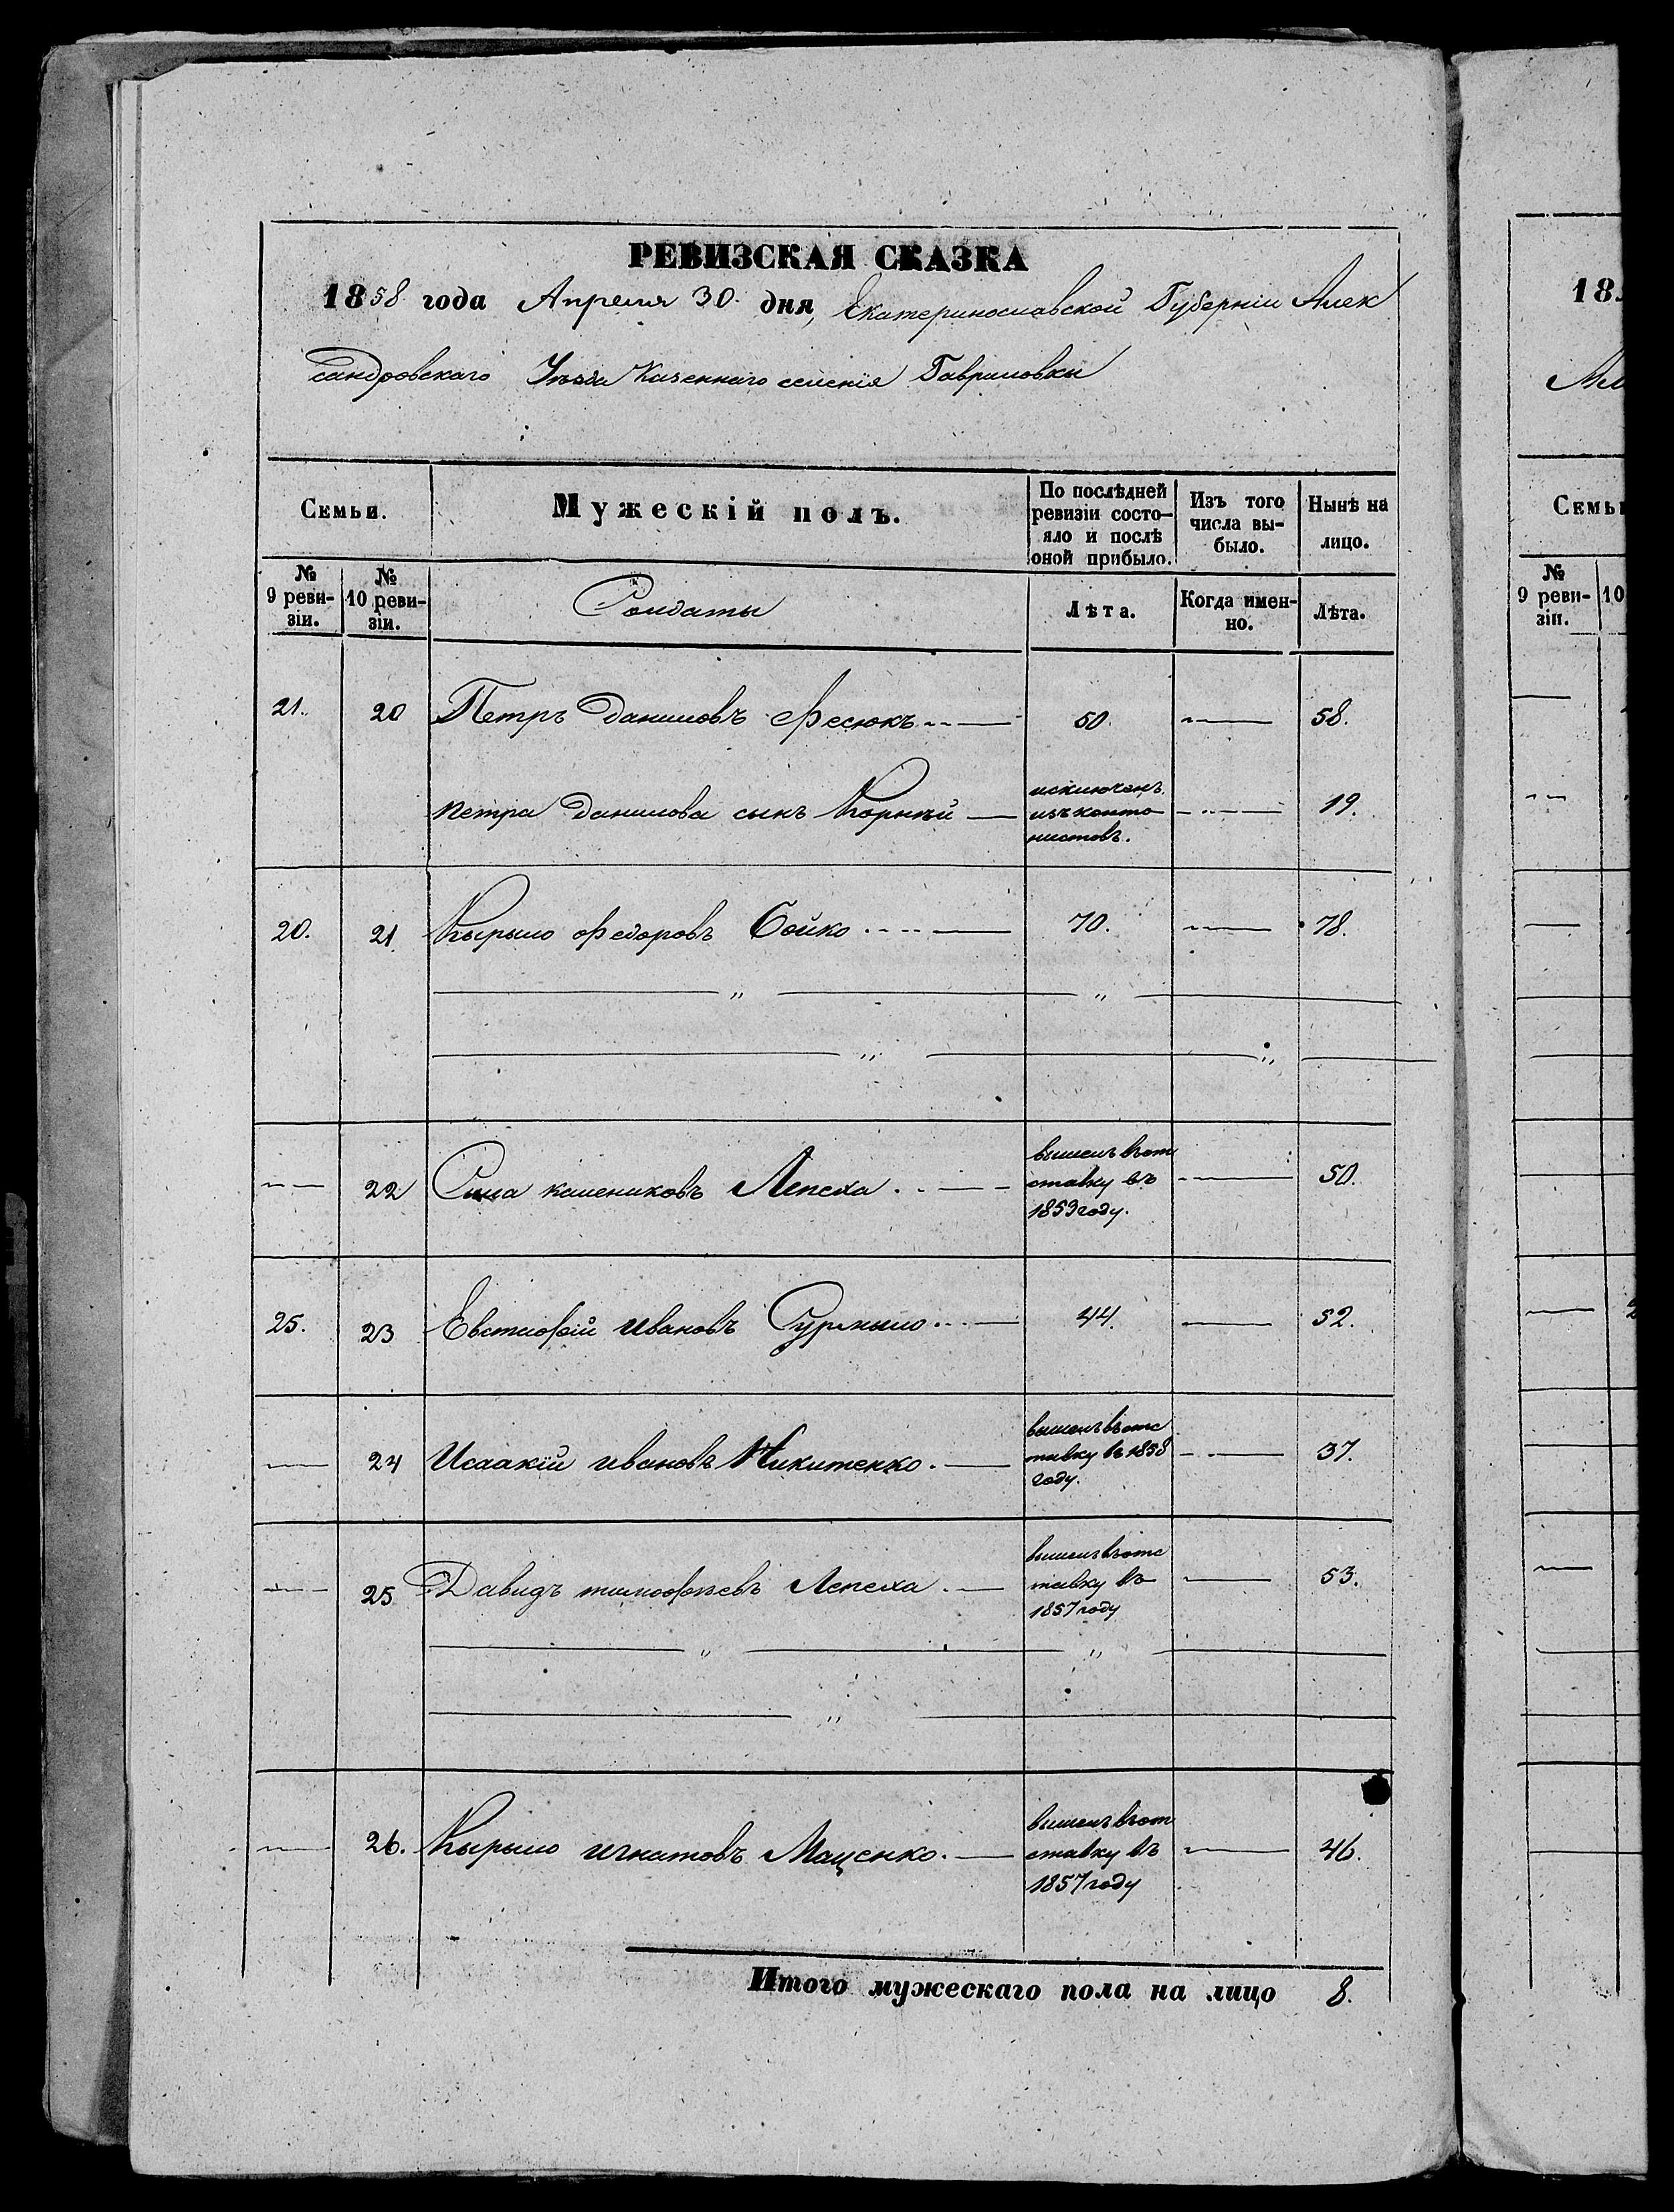 РЕВИЗСКАЯ СКАЗКА
1858 года Апреля 30. дня, Екатеринославской Губерніи Алек
сандровскаго Уѣзда Казеннаго селенія Гавриловки
Семьи.
Мужескій полъ.
По послѣдней
ревизіи состо-
яло и послѣ
оной прибыло.
Изъ того
числа вы-
было.
Нынѣ на
лицо.
№
9 реви-
зіи.
№
10 реви-
зіи.
Солдаты
Лѣта.
Когда имен-
но.
Лѣта.
21. 20 Петръ Даниловъ Фесюкъ 50. 58.
петра Данилова сынъ Корнѣй
исключенъ
изъ канто
нистовъ.
19.
20. 21 Кырыло федоровъ Бойко 70. 78.
22 Сила Лепеха
вышелъ въ от
ставку въ
1853 году.
50.
25. 23 Евстафій ивановъ 44. 52.
24 Исаакій ивановъ Никитенко
вышелъ въ отс
тавку въ 1858
году.
37.
25 Давидъ тимофѣевъ Лепеха
вышелъ въ отс
тавку въ
1857 году
53.
26. Кырыло игнатовъ Маценко.
вышелъ въ от
ставку въ
1857 году
46.
Итого мужескаго пола на лицо 8.
18
Семь
№
9 реви-
зіи.
10